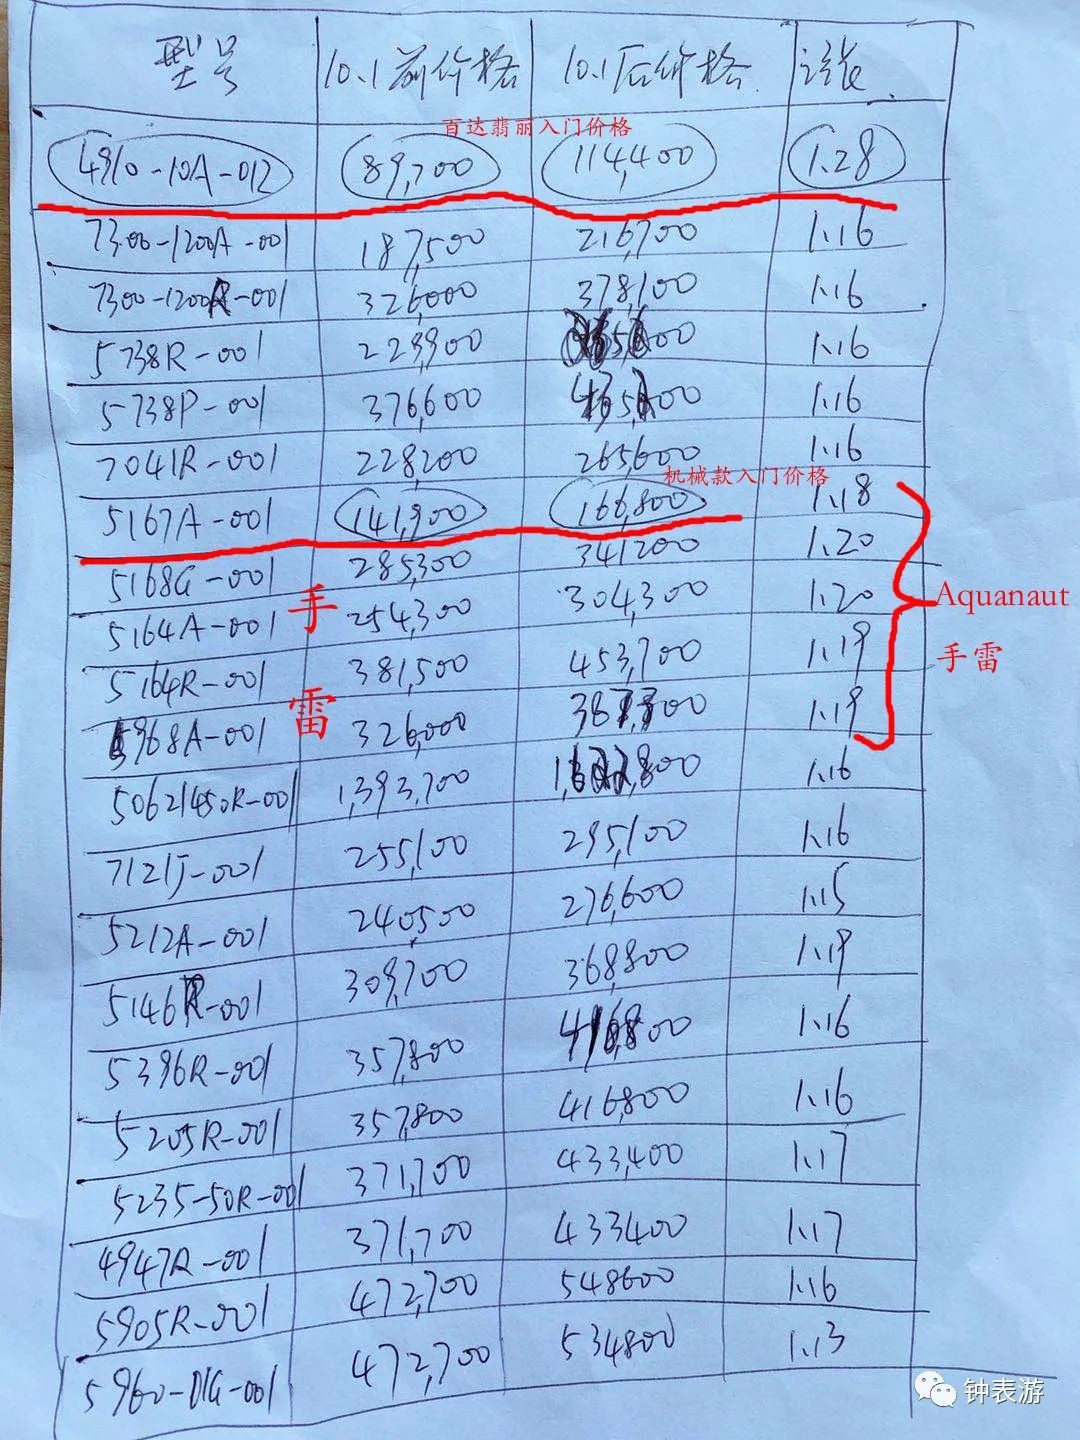 型号 10.1前价格 10.1后价格 涨
百达翡丽入门价格
4910-10A-012 89,700 114,400 1.28
7300-1200A-001 187,500 216,700 1.16
7300-1200R-001 326,000 378,100 1.16
5738R-001 229,900 1.16
5738P-001 376,600 1.16
7041R-001 228,200 265,600 1.16
机械款入门价格
5167A-001 141,900 166,800 1.18
5168G-001 285,300 341200 1.20
5164A-001 254,300 304,300 1.20
Aquanaut
手雷
手雷
5164R-001 381,500 453,700 1.19
5968A-001 326,000 1.19
5062/450R-001 1,393,700 1.16
7121J-001 255,100 295,100 1.16
5212A-001 240,500 276,600 1.15
5146R-001 309,700 368,800 1.19
5396R-001 357,800 1.16
5205R-001 357,800 416,800 1.16
5235-50R-001 371,700 433,400 1.17
4947R-001 371,700 433400 1.17
5905R-001 472,700 548600 1.16
5960-01G-001 472,700 534800 1.13
钟表游